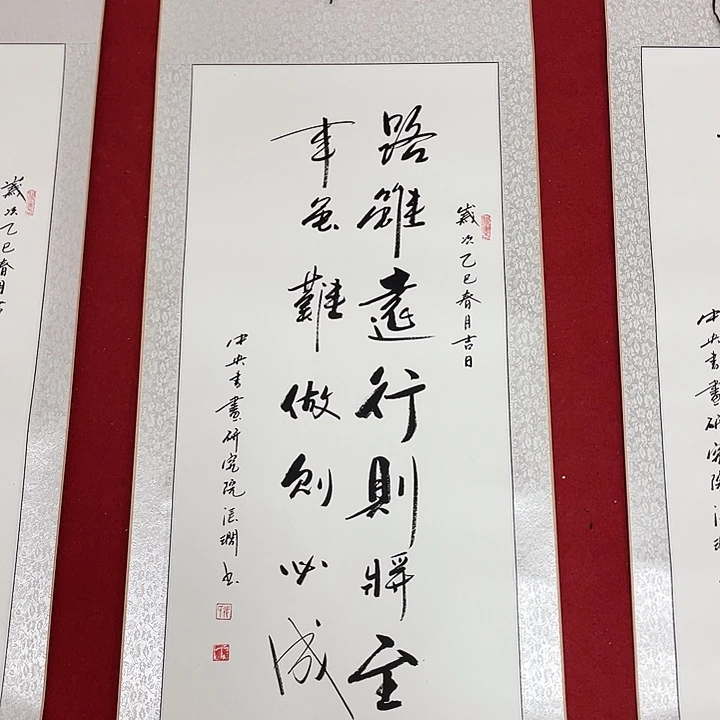 中央书畫研究院
歲次乙巳春月吉日
路雖遠行則將至
事虽難做则必成
中央书畫研究院 书
歲次乙巳春月吉